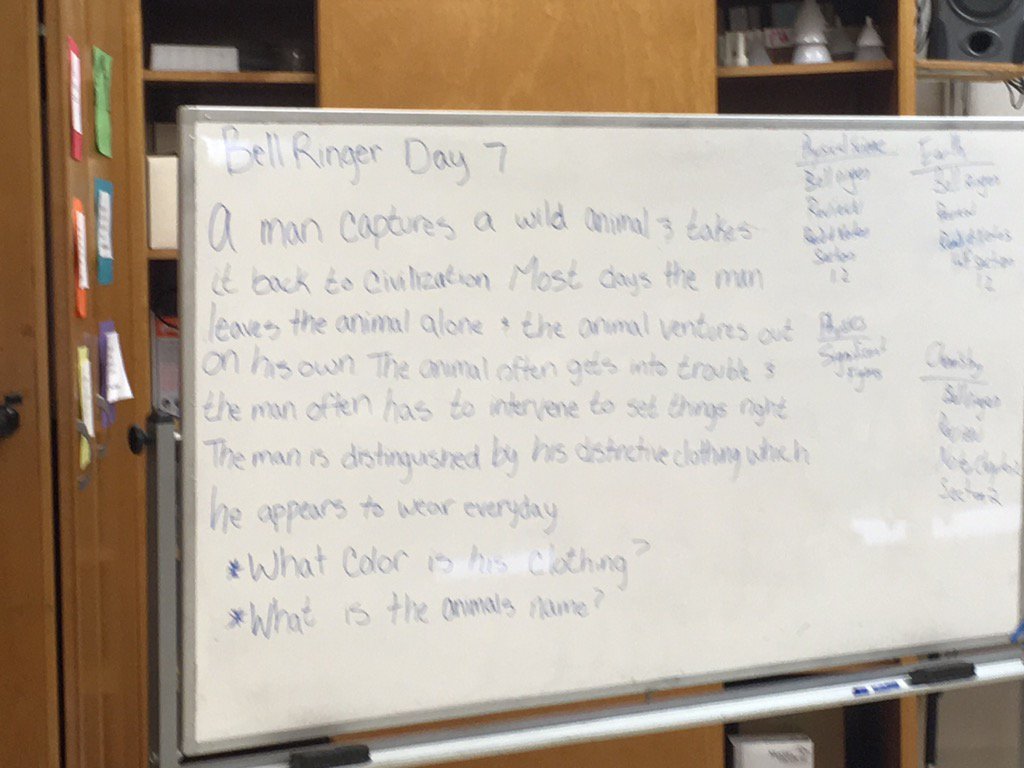 Bell Ringer Day 7
A man captures a wild animal & takes
it back to Civilization Most days the man
leaves the animal alone & the animal ventures out
on his own The animal often gets into trouble &
the man often has to intervene to set things right
The man is distinguished by his distinctive clothing which
he appears to wear everyday
*What Color is his clothing?
*What is the animals name?
Physical Science
Bell ringer
Review
Section
1.2
Earth
Bell Ringer
Review
section
1.2
Physics
Significant
Chemistry
Bell ringer
Review
Notes Chapter 2
Section 2